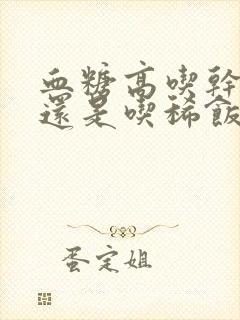 血糖高喫幹
還是喫稀飯
蛋定姐